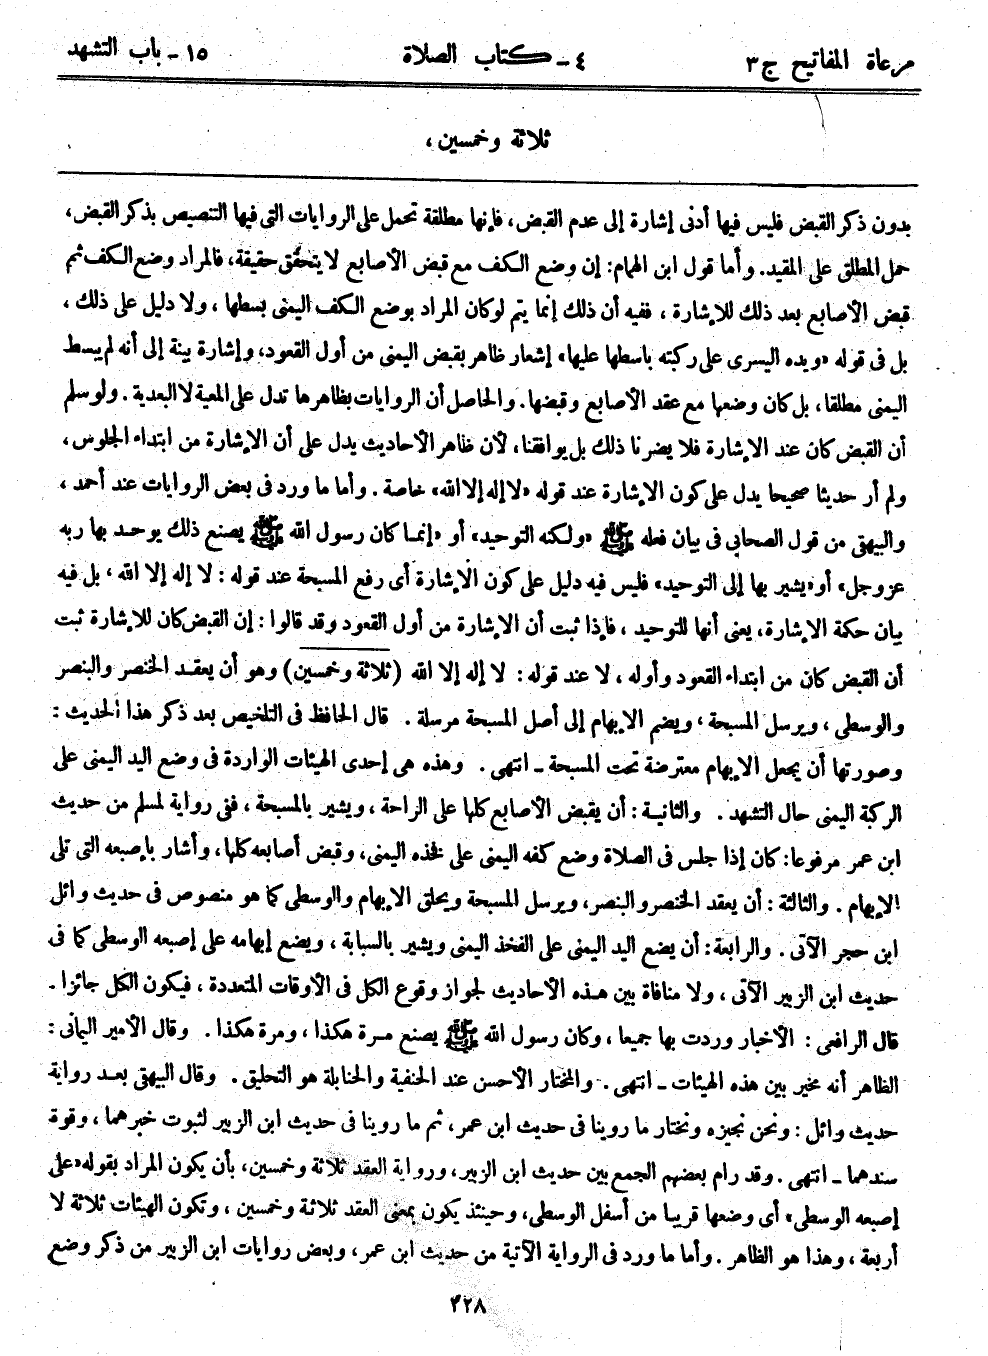 مرعاة المفاتيح ج ٣
٤ ـ كتاب الصلاة
١٥ ـ باب التشهد
ثلاثة وخمسين ،
بدون ذكر القبض فليس فيها أدنى إشارة إلى عدم القبض، فإنها مطلقة تحمل على الروايات التى فيها التنصيص بذكر القبض،
حمل المطلق على المقيد. وأما قول ابن الهمام: إن وضع الكف مع قبض الأصابع لا يتحقق حقيقة، فالمراد وضع الكف ثم
قبض الأصابع بعد ذلك للإشارة ، ففيه أن ذلك إنما يتم لو كان المراد بوضع الكف اليمنى بسطها ، ولا دليل على ذلك ،
بل فى قوله «ويده اليسرى على ركبته باسطها عليها» إشعار ظاهر بقبض اليمنى من أول القعود، وإشارة بينة إلى أنه لم يبسط
اليمنى مطلقا، بل كان وضعها مع عقد الأصابع وقبضها. والحاصل أن الروايات بظاهرها تدل على المعية لا البعدية. ولو سلم
أن القبض كان عند الإشارة فلا يضرنا ذلك بل يوافقنا، لأن ظاهر الأحاديث يدل على أن الإشارة من ابتداء الجلوس،
ولم أر حديثا صحيحا يدل على كون الإشارة عند قوله «لا إله إلا الله» خاصة . وأما ما ورد فى بعض الروايات عند أحمد ،
والبيهقى من قول الصحابى فى بيان فعله ﷺ «ولكنه التوحيد» أو «إنما كان رسول الله ﷺ يصنع ذلك يوحد بها ربه
عزوجل» أو «يشير بها إلى التوحيد» فليس فيه دليل على كون الإشارة أى رفع المسبحة عند قوله : لا إله إلا الله ، بل فيه
بيان حكمة الإشارة، يعنى أنها للتوحيد ، فإذا ثبت أن الإشارة من أول القعود وقد قالوا : إن القبض كان للإشارة ثبت
أن القبض كان من ابتداء القعود وأوله ، لا عند قوله : لا إله إلا الله (ثلاثة وخمسين) وهو أن يعقد الخنصر والبنصر
والوسطى ، ويرسل المسبحة ، ويضم الإبهام إلى أصل المسبحة مرسلة . قال الحافظ فى التلخيص بعد ذكر هذا الحديث :
وصورتها أن يجعل الإبهام معترضة تحت المسبحة ـ انتهى . وهذه هى إحدى الهيئات الواردة فى وضع اليد اليمنى على
الركبة اليمنى حال التشهد . والثانية : أن يقبض الأصابع كلها على الراحة ، ويشير بالمسبحة ، ففى رواية لمسلم من حديث
ابن عمر مرفوعا: كان إذا جلس فى الصلاة وضع كفه اليمنى على فخذه اليمنى، وقبض أصابعه كلها، وأشار بإصبعه التى تلى
الإبهام . والثالثة : أن يعقد الخنصر والبنصر، ويرسل المسبحة ويحلق الإبهام والوسطى كما هو منصوص فى حديث وائل
ابن حجر الآتى . والرابعة: أن يضع اليد اليمنى على الفخذ اليمنى ويشير بالسبابة ، ويضع إبهامه على إصبعه الوسطى كما فى
حديث ابن الزبير الآتى ، ولا منافاة بين هذه الأحاديث لجواز وقوع الكل فى الأوقات المتعددة ، فيكون الكل جائزا .
قال الرافعى : الأخبار وردت بها جميعا ، وكان رسول الله ﷺ يصنع مرة هكذا ، ومرة هكذا . وقال الأمير اليمانى :
الظاهر أنه مخير بين هذه الهيئات ـ انتهى . والمختار الأحسن عند الحنفية والحنابلة هو التحليق . وقال البيهقى بعد رواية
حديث وائل : ونحن نجيزه ونختار ما روينا فى حديث ابن عمر، ثم ما روينا فى حديث ابن الزبير لثبوت خبرهما ، وقوة
سندهما ـ انتهى . وقد رام بعضهم الجمع بين حديث ابن الزبير، ورواية العقد ثلاثة وخمسين، بأن يكون المراد بقوله «على
إصبعه الوسطى» أى وضعها قريبا من أسفل الوسطى، وحينئذ يكون بمعنى العقد ثلاثة وخمسين ، وتكون الهيئات ثلاثة لا
أربعة ، وهذا هو الظاهر . وأما ما ورد فى الرواية الآتية من حديث ابن عمر، وبعض روايات ابن الزبير من ذكر وضع
٤٢٨